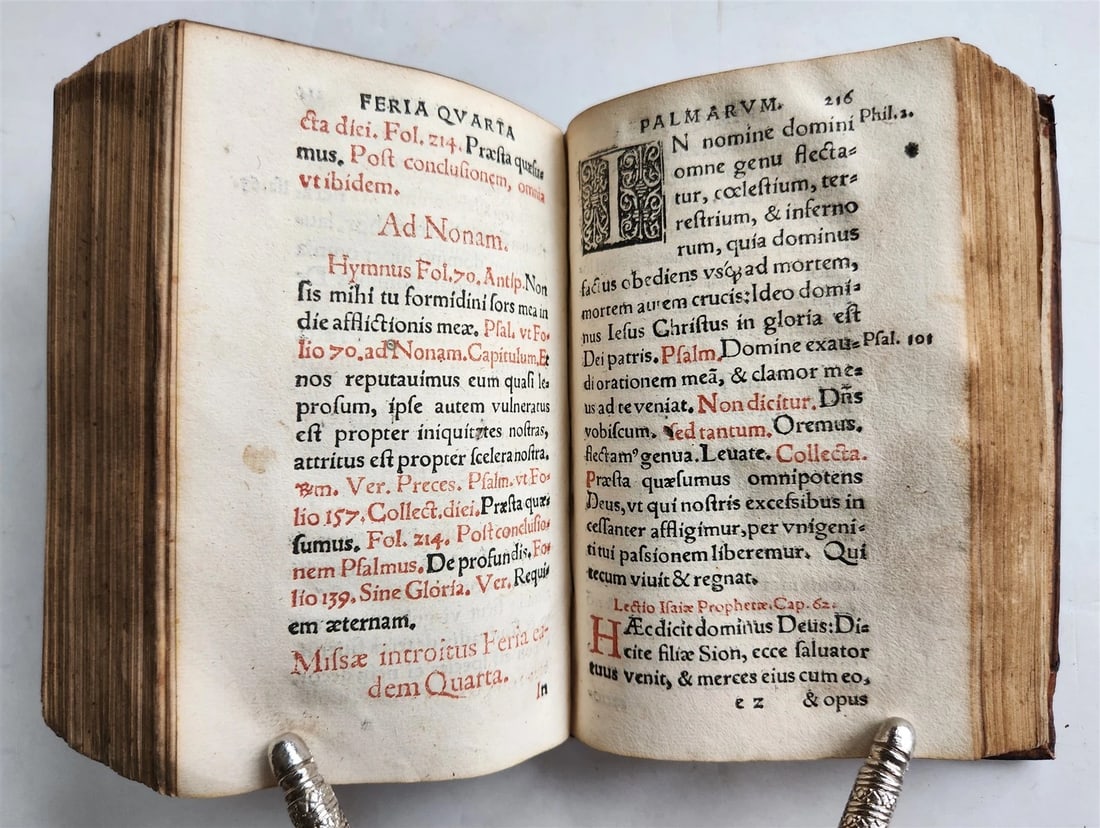 FERIA QVARTA
cta diei. Fol. 214. Præsta quæsu-
mus. Post conclusionem, omnia
vt ibidem.
Ad Nonam.
Hymnus Fol. 70. Antip. Non
sis mihi tu formidini sors mea in
die afflictionis meæ. Psal. vt Fo-
lio 70. ad Nonam. Capitulum. Et
nos reputauimus eum quasi le-
prosum, ipse autem vulneratus
est propter iniquitates nostras,
attritus est propter scelera nostra.
Ver. Preces. Psalm. vt Fo-
lio 157. Collect. diei. Præsta quæ-
sumus. Fol. 214. Post conclusio-
nem Psalmus. De profundis. Fo-
lio 139. Sine Gloria. Ver. Requi-
em æternam.
Missæ introitus Feria ea-
dem Quarta.
In
PALMARVM. 216
IN nomine domini Phil. 2.
omne genu flecta-
tur, cœlestium, ter-
restrium, & inferno
rum, quia dominus
factus obediens vsq; ad mortem,
mortem autem crucis: Ideo domi-
nus Iesus Christus in gloria est
Dei patris. Psalm. Domine exau- Psal. 101
di orationem meã, & clamor me-
us ad te veniat. Non dicitur. Dñs
vobiscum. sed tantum. Oremus.
flectam⁹ genua. Leuate. Collecta.
Præsta quæsumus omnipotens
Deus, vt qui nostris excessibus in
cessanter affligimur, per vnigeni-
ti tui passionem liberemur. Qui
tecum viuit & regnat.
Lectio Isaiæ Prophetæ. Cap. 62.
HÆc dicit dominus Deus: Di-
cite filiæ Sion, ecce saluator
tuus venit, & merces eius cum eo,
e 2 & opus